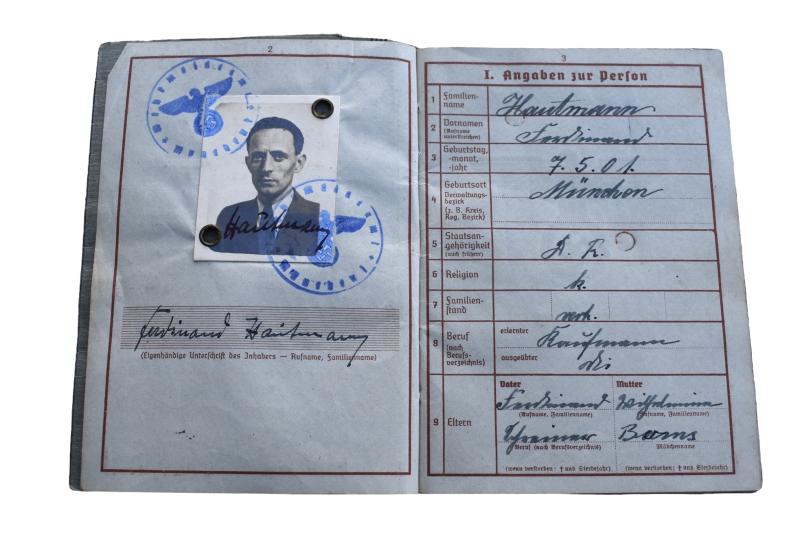 2
Hautmann
Ferdinand Hautmann
(Eigenhändige Unterschrift des Inhabers — Rufname, Familienname)
3
I. Angaben zur Person
1 Familien-
name
Hautmann
2 Vornamen
(Rufname
unterstreichen)
Ferdinand
3 Geburtstag,
-monat,
-jahr
7. 5. 01.
4 Geburtsort
Verwaltungs-
bezirk
(z. B. Kreis,
Reg. Bezirk)
München
5 Staatsan-
gehörigkeit
(auch frühere)
D. R.
6 Religion
k.
7 Familien-
stand
verh.
8 Beruf
(nach
Berufs-
verzeichnis)
erlernter
Kaufmann
ausgeübter
9 Eltern
Vater
Mutter
Ferdinand
Wilhelmine
(Rufname, Familienname)
(Rufname, Familienname)
Schreiner
Beruf (nach Berufsverzeichnis)
Mädchenname
(wenn verstorben: † und Sterbejahr)
(wenn verstorben: † und Sterbejahr)